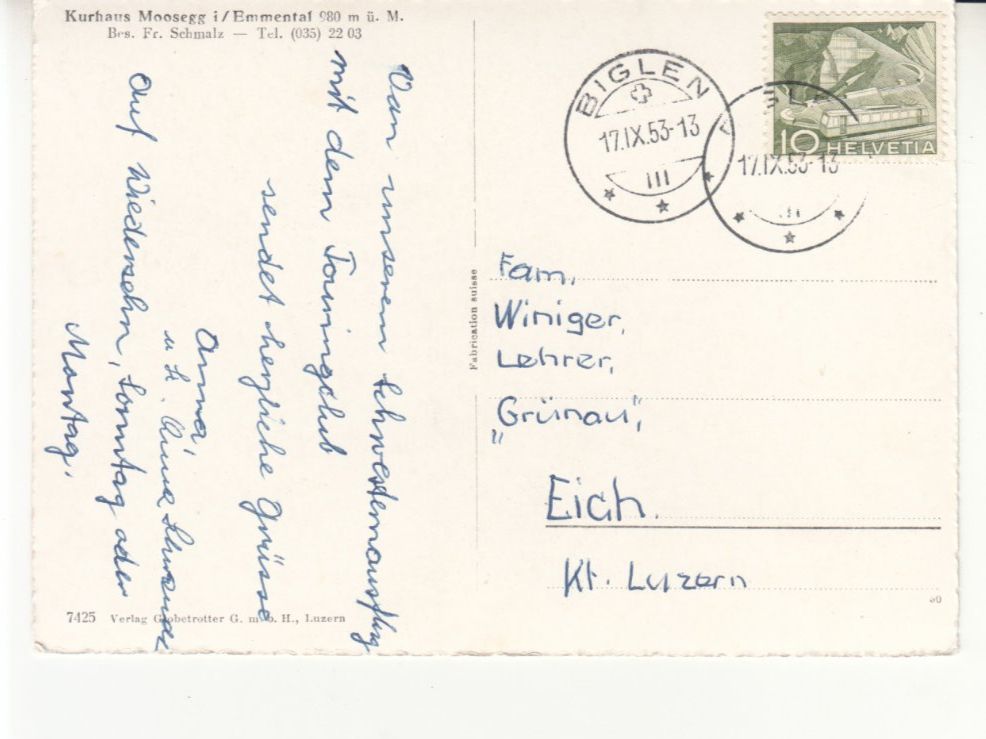 Kurhaus Moosegg i/Emmental 980 m ü. M.
Bes. Fr. Schmalz — Tel. (035) 22 03
Von unserem Schwesternausflug
mit dem Touringclub
sendet herzliche Grüsse
Anna
u. Sr.
Auf Wiedersehn, Sonntag oder
Montag.
7425 Verlag Globetrotter G. m. b. H., Luzern
Fabrication suisse
BIGLEN
17.IX.53-13
III
17.IX.53-13
10 HELVETIA
Fam.
Winiger,
Lehrer,
„Grünau",
Eich.
Kt. Luzern